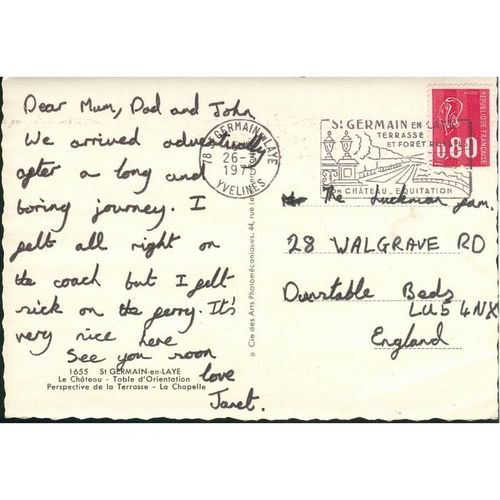 Dear Mum, Dad and John
We arrived adventually
after a long and
boring journey. I
felt all right on
the coach but I felt
sick on the ferry. It's
very nice here
See you soon
love
Janet.
1655 St GERMAIN-en-LAYE
Le Château - Table d'Orientation
Perspective de la Terrasse - La Chapelle
Cie des Arts Photomécaniques, 44, rue
78 St GERMAIN EN LAYE
26-
197
YVELINES
St GERMAIN EN LAYE
TERRASSE
ET FORÊT
SON CHÂTEAU EQUITATION
RÉPUBLIQUE FRANÇAISE
0,80
The Luckman fam.
28 WALGRAVE RD
Dunstable Beds
LU5 4NX
England